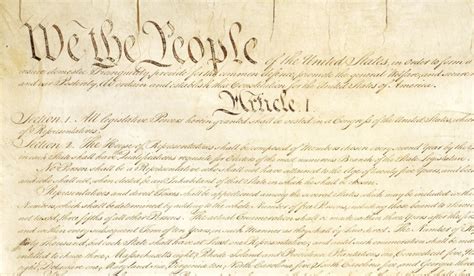 We the People of the United States, in Order to form a
insure domestic Tranquility, provide for the common defence, promote the general Welfare, and secure
and our Posterity, do ordain and establish this Constitution for the United States of America.
Article. I.
Section. 1. All legislative Powers herein granted shall be vested in a Congress of the United States, which
of Representatives.
Section. 2. The House of Representatives shall be composed of Members chosen every second Year by the
in each State shall have Qualifications requisite for Electors of the most numerous Branch of the State Legislature.
No Person shall be a Representative who shall not have attained to the Age of twenty five Years, and been
and who shall not, when elected, be an Inhabitant of that State in which he shall be chosen.
Representatives and direct Taxes shall be apportioned among the several States which may be included within
Numbers, which shall be determined by adding to the whole Number of free Persons, including those bound to
not taxed, three fifths of all other Persons. The actual Enumeration shall be made within three Years after the
and within every subsequent Term of ten Years, in such Manner as they shall by Law direct. The Number of
thirty Thousand, but each State shall have at Least one Representative; and until such
entitled to chuse three, Massachusetts eight, Rhode-Island and Providence Plantations one, Connecticut
eight, Delaware one, Maryland six, Virginia ten, North Carolina five, South Carolina five, and Georgia